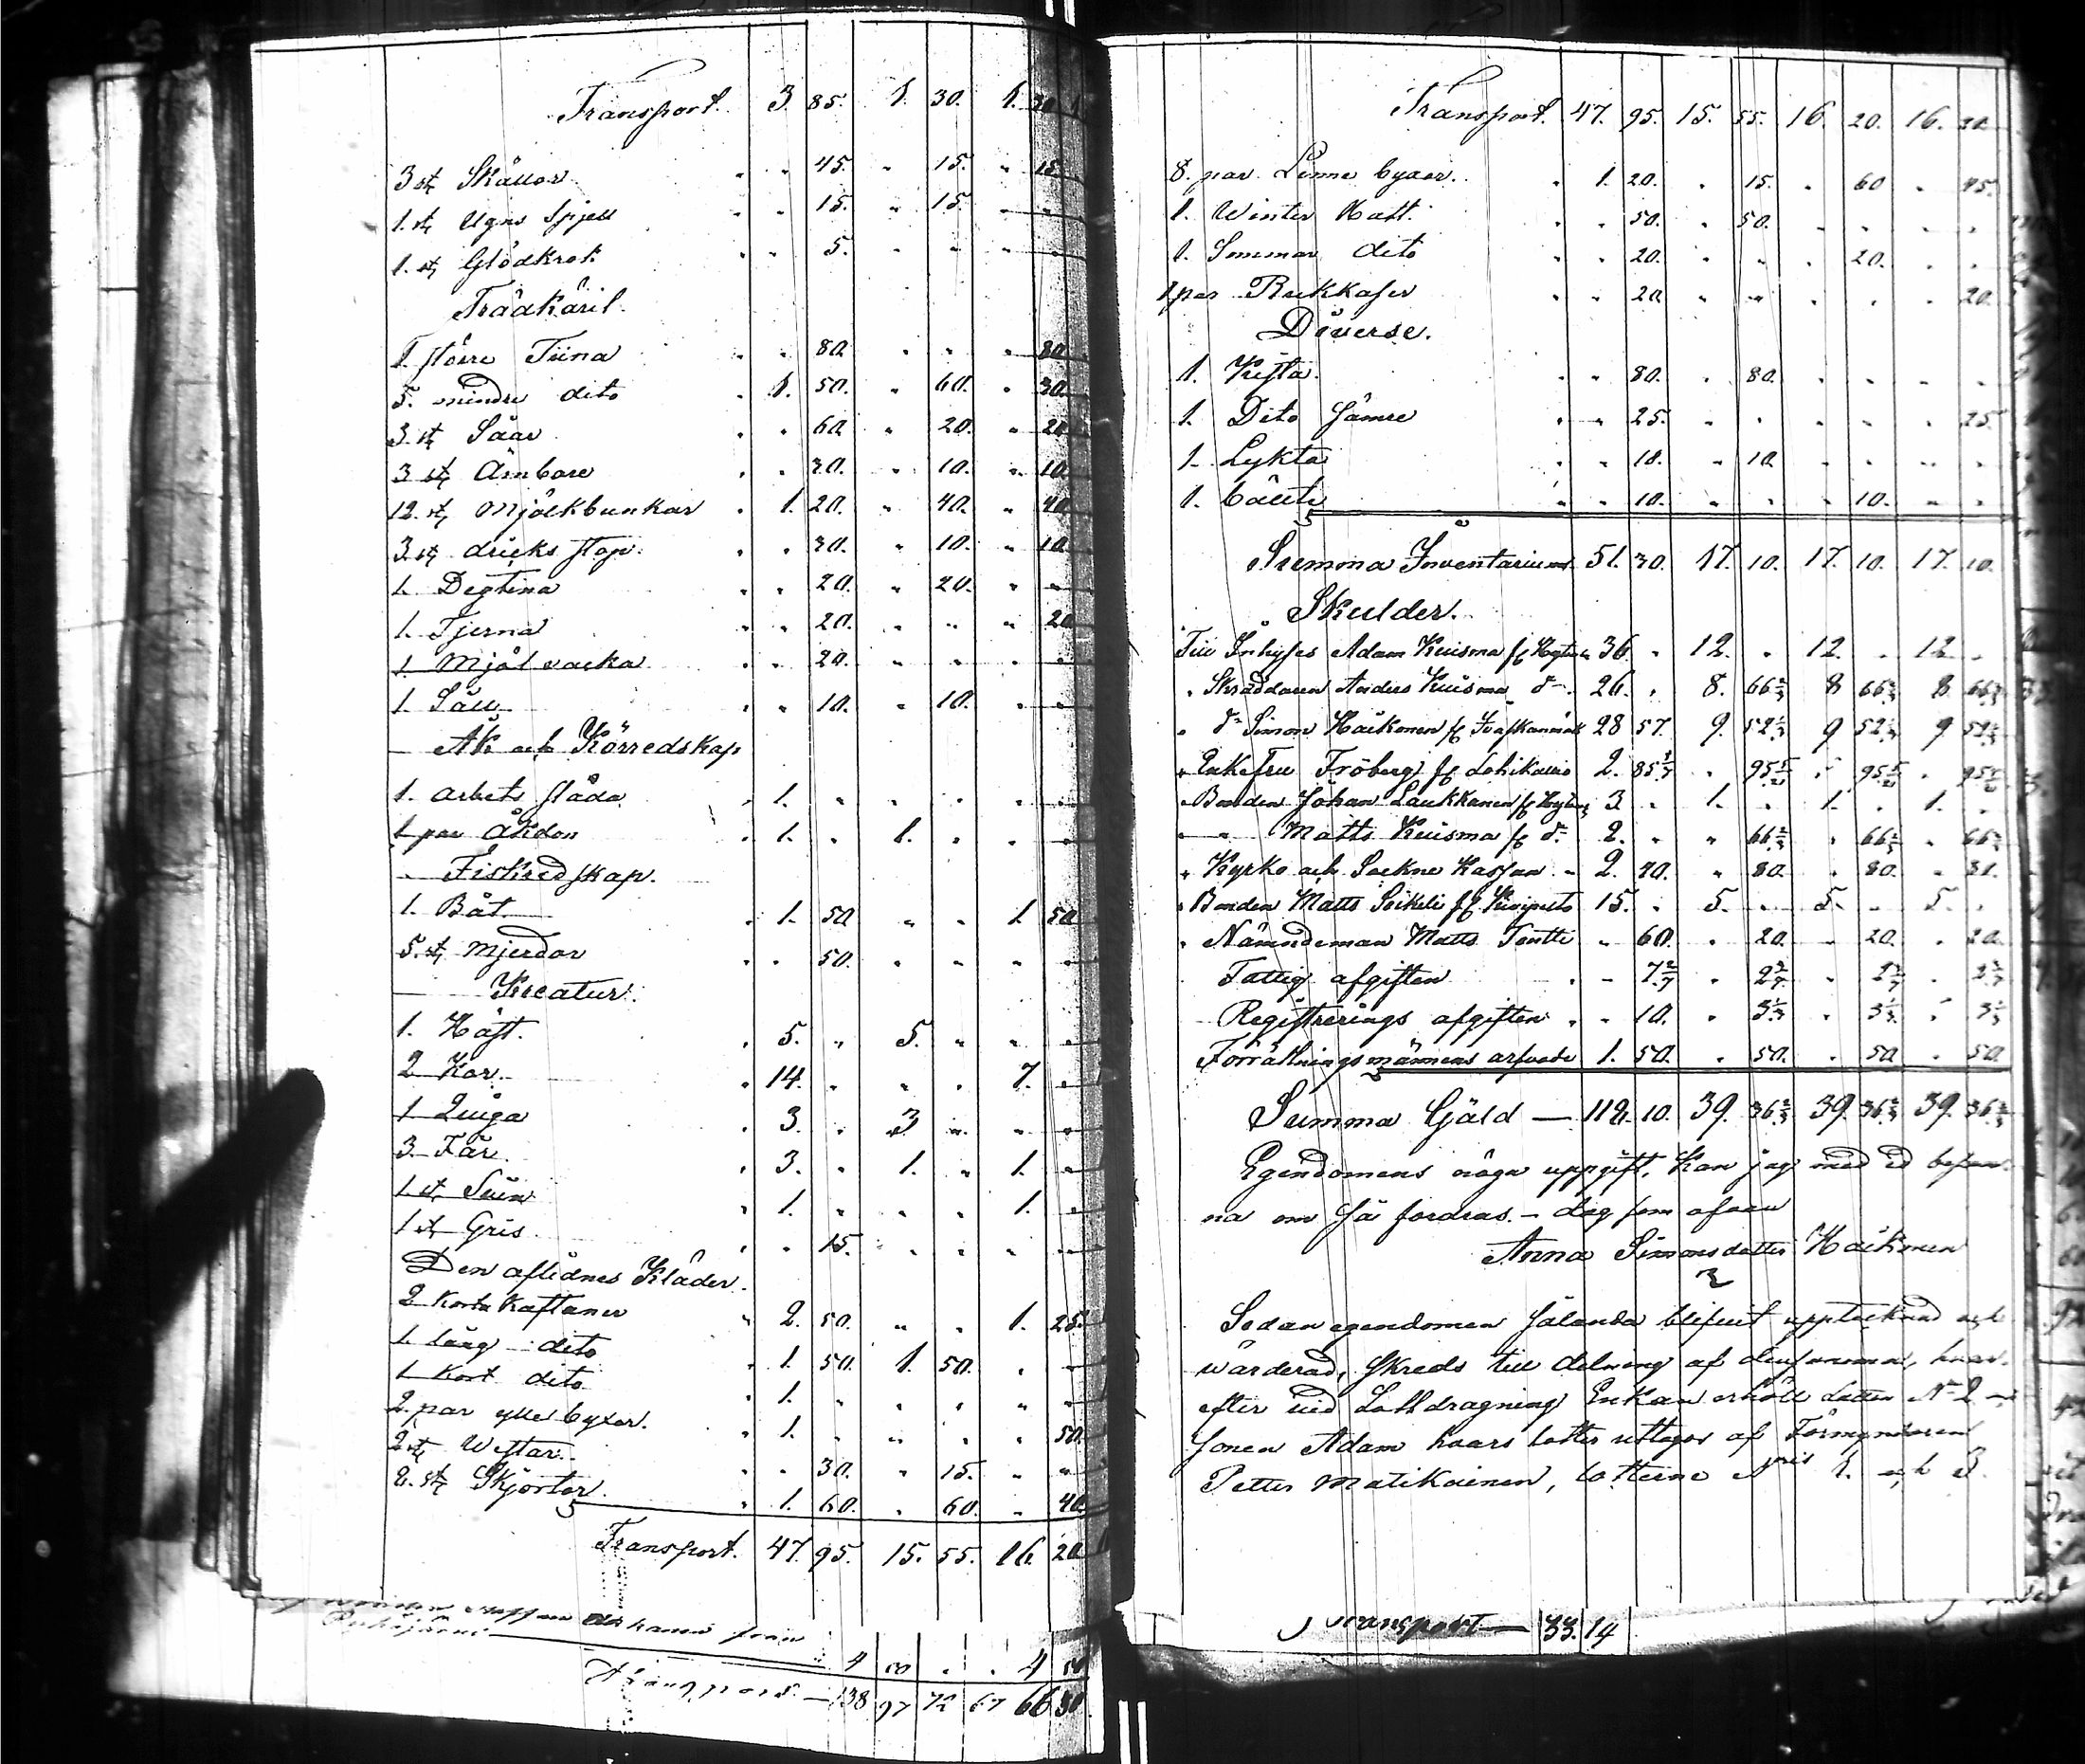 Transport. 3. 85. 1. 30. 1. 30
3 st Skållor " " 45. " 15. " 15.
1. st Ugns spjell " " 15. " 15. " "
1. st Glödkrok " " 5. " " " "
Trädkäril.
1. större Tiina " " 80. " " " 80
5. mindre dito " 1. 50. " 60. " 30.
3 st Såar " " 60. " 20. " 20
3 st Ämbare " " 30. " 10. " 10
12. st Mjölkbunkar " 1. 20. " 40. " 40
3 st dricks stop. " " 30. " 10. " 10
1. Degtina " " 20. " 20. " "
1. Tjerna " " 20. " " " 20
1. Mjöl vacka " " 20. " " " "
1. Såll " " 10. " 10. " "
Åk och Körredskap
1. arbets släda " 1. " " " " "
1 par åkdon " 1. " 1. " " "
Fiskredskap.
1. Båt " 1. 50 " " 1. 50
5. st Mjerdor " " 50. " " " "
Kreatur.
1. Häst. " 5. " 5. " " "
2 Kor. " 14. " " " 7. "
1 Quiga " 3. " 3 " " "
3 Får. " 3. " 1. " 1. "
1 st Suin " 1. " " " 1. "
1 st Gris " " 15. " " " "
Den aflidnes Kläder.
2 korta Kaftaner " 2. 50. " " 1. 25.
1. lång dito " 1. 50. 1. 50. " "
1 kort dito " 1. " " " " "
2. par ylle byxor. " 1. " " " " 50.
2 st Westar. " " 30. " 15. " "
8. st Skjortor. " 1. 60. " 60. " 40
Transport. 47. 95. 15. 55. 16. 20
från
4 50 . . 4 50
Transport. — 138 97 72 67 66 30
Transport. 47. 95. 15. 55. 16. 20. 16. 20
8. par Linne byxor. " 1. 20. " 15. " 60 " 45.
1. Winter Hatt. " " 50. " 50. " " " "
1. Sommar dito " " 20. " " " 20. " "
1 par Rukkaser " " 20 " " " " " 20
Diverse.
1. Kista. " " 80. " 80. " " " "
1. Dito sämre " " 25. " " " " " 25.
1. Lykta " " 10. " 10 " " " "
1. bälte " " 10. " " " 10. " "
Summa Inventarium 51. 30. 17. 10. 17. 10. 17. 10.
Skulder.
Till Inhyses Adam Kuisma 36. " 12. " 12. " 12 "
" Skräddaren Anders Kuisma d:o 26. " 8. 66⅔ 8 66⅔ 8 66⅔
" d:o Simon Haikonen 28 57. 9. 52⅓ 9 52⅓ 9 52⅓
" Enkefru Fröberg Lohikallio 2. 85 " 95 " 95 " 95
" Bonden Johan Laukkanen 3 " 1. " 1. " 1. "
" " Matts Kuisma d:o 2. " " 66⅔ " 66⅔ " 66⅔
" Kyrko och Sockne Kassan 2. 40. " 80. " 80. " 80.
" Bonden Matts 15. " 5. " 5. " 5. "
" Nämndeman Matts Tontti " 60. " 20. " 20. " 20
Fattig afgiften " " 7 " 2 " 2 " 2
Registrerings afgiften " " 10. " 3⅓ " 3⅓ " 3⅓
Förrättningsmännens arfvode 1. 50. " 50. " 50 " 50
Summa Gäld — 118. 10. 39. 36⅔ 39. 36⅔ 39. 36⅔
Egendomens noga uppgift, kan jag med ed besan-
na om så fordras. — dag som ofvan
Anna Simonsdotter Haikonen
Sedan egendomen sålunda blifvit upptecknad och
wärderad, skreds till delning af densamma, hvar-
efter vid Lottdragning Enkan erhöll Lotten N:o 2 —
sonen Adam hvars lotter uttogos af Förmyndaren
Petter Matikainen, lotterne N:ris 1. och 3.
Transport — 33. 14